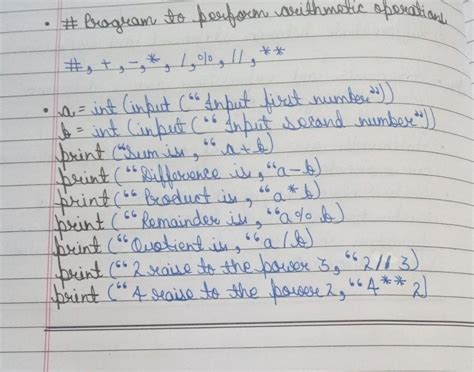 • # Program to perform arithmetic operations
#, +, -, *, /, %, //, **
• a = int (input (“Input first number”))
b = int (input (“Input second number”))
print (“Sum is, “a+b)
print (“Difference is, “a-b)
print (“Product is, “a*b)
print (“Remainder is, “a% b)
print (“Quotient is, “a/b)
print (“2 raise to the power 3, “2//3)
print (“4 raise to the power 2, “4**2)